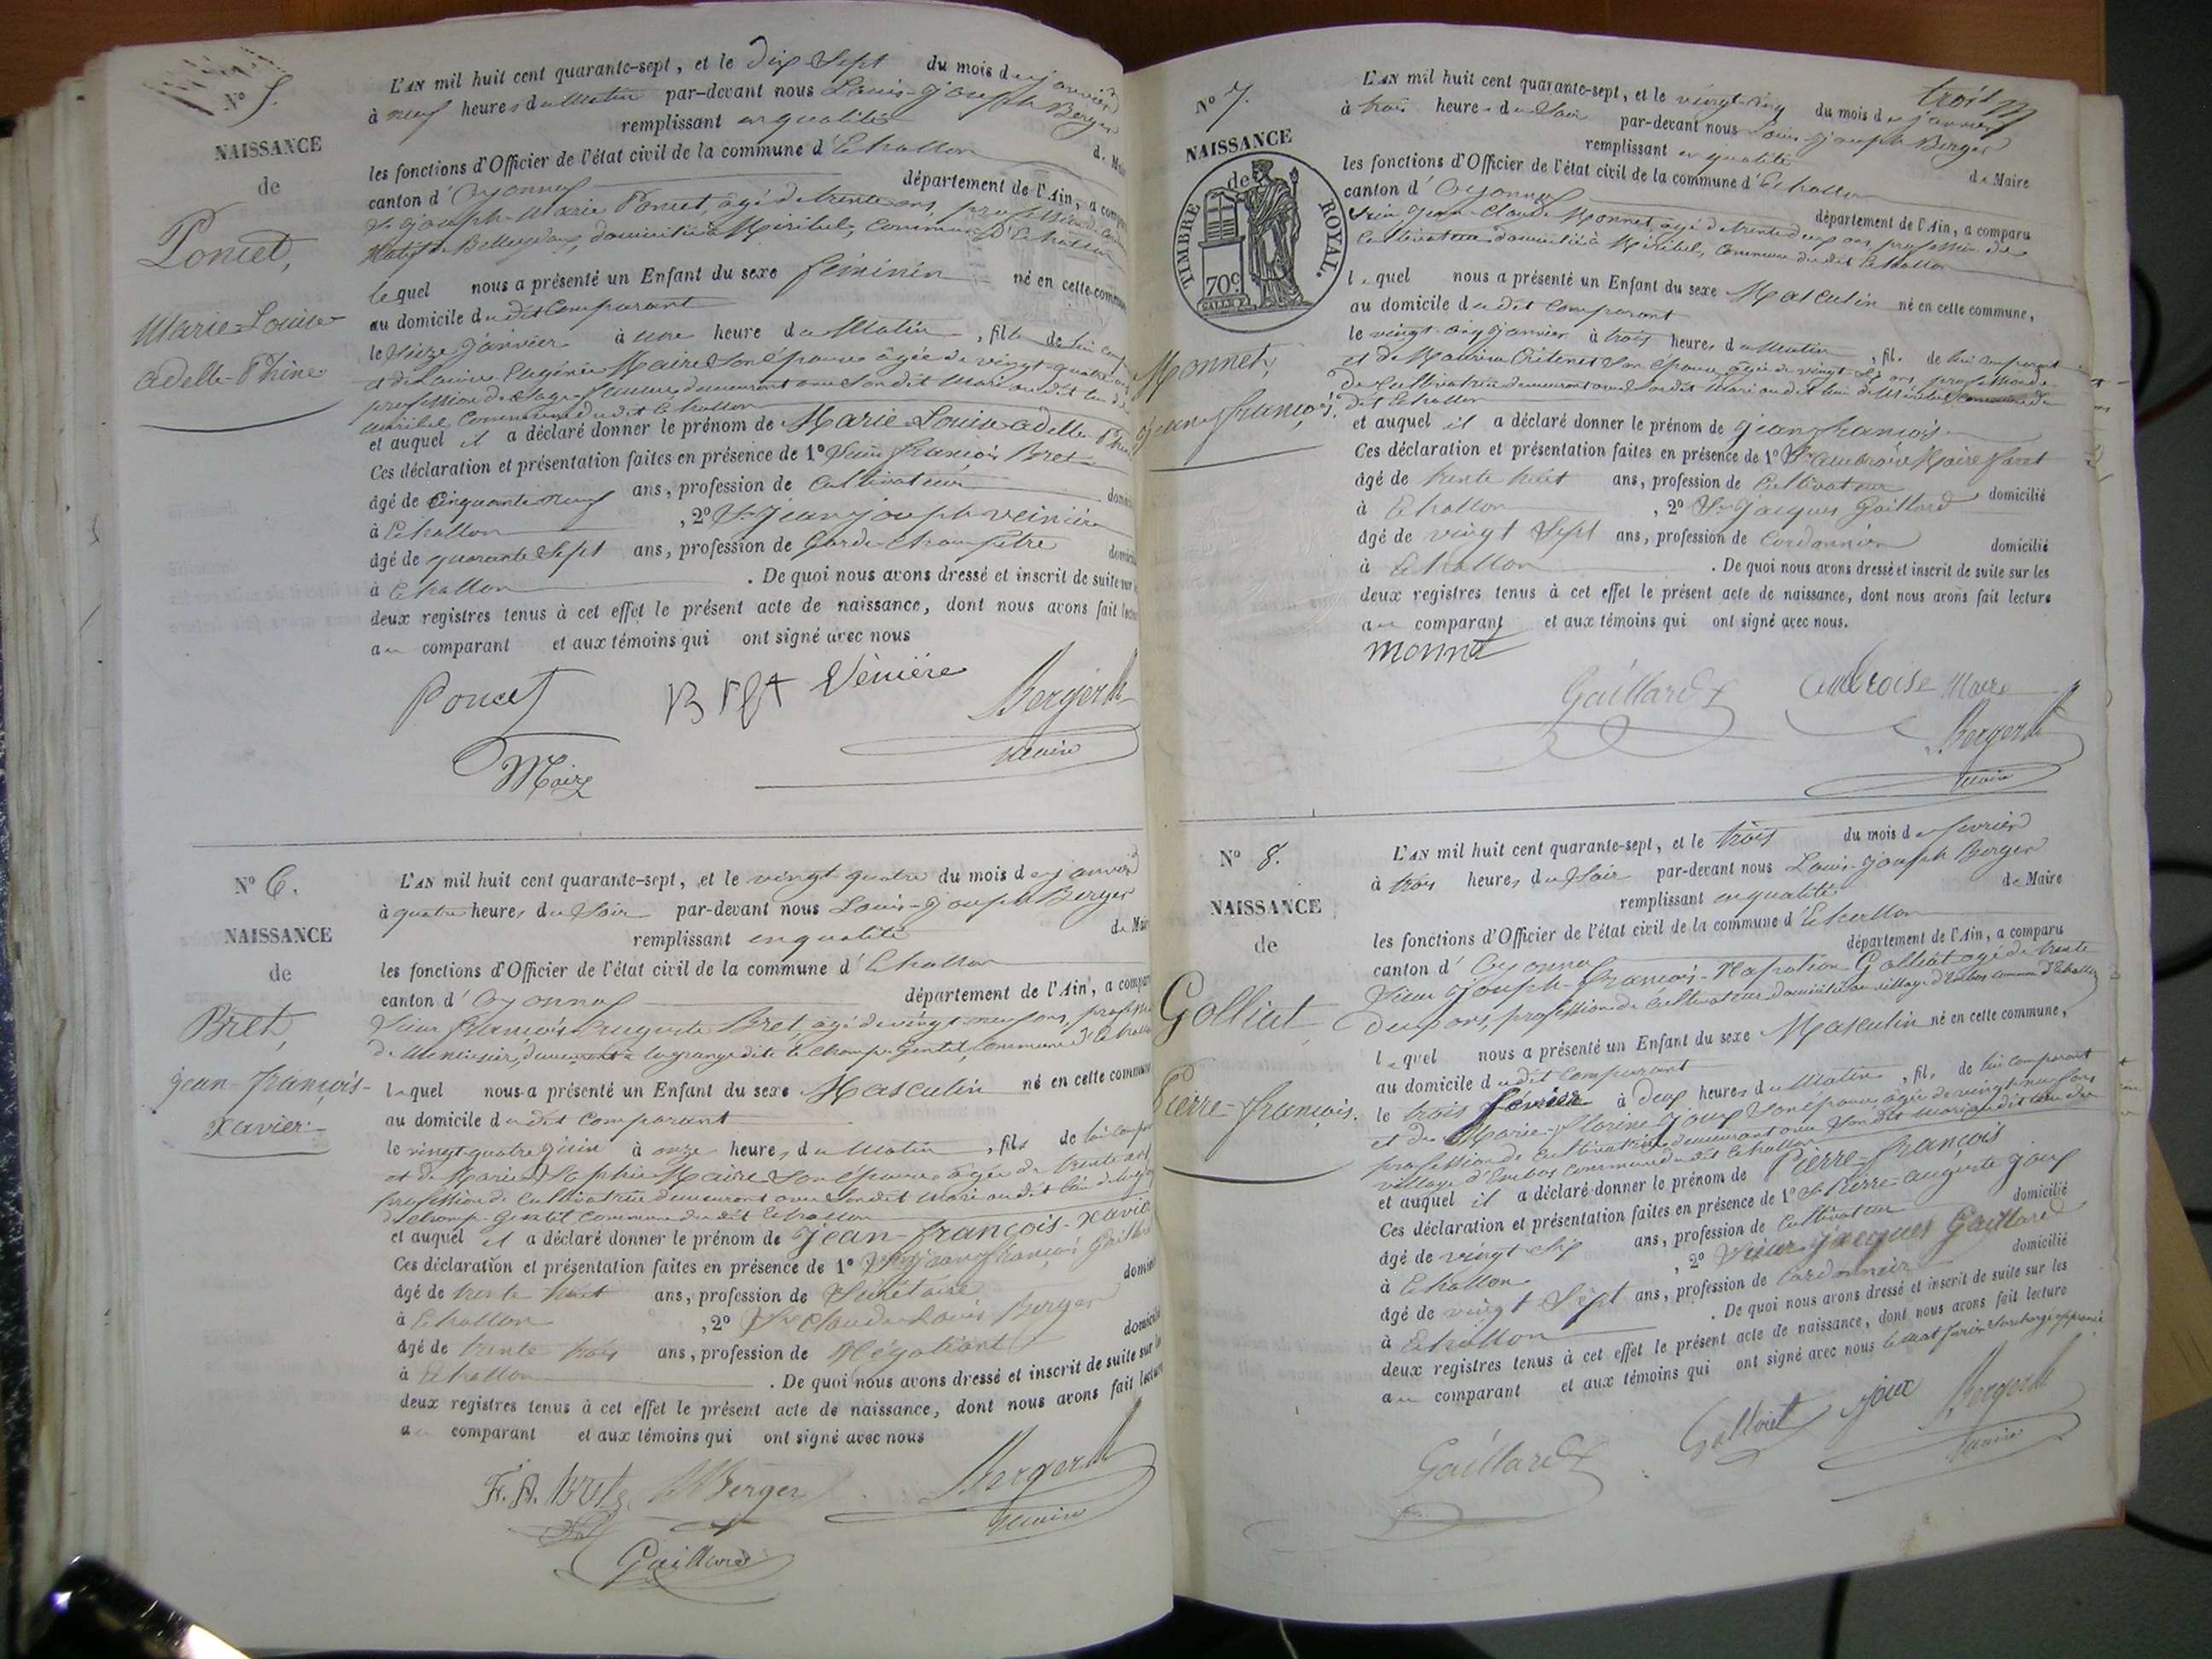 N° 5.
NAISSANCE
de
Poncet,
Marie-Louise
adelle-Phine
L'AN mil huit cent quarante-sept, et le dix Sept du mois de janvier
à neuf heures du Matin par-devant nous Louis-Joseph Berger
remplissant en qualité de Maire
les fonctions d'Officier de l'état civil de la commune d'Echallon
canton d'Oyonnax département de l'Ain, a comparu
Sr Joseph-Marie Poncet, âgé de trente ans, profession de
Natif de Bellegdoux, domicilié à Miribel, Commune d'Echallon
lequel nous a présenté un Enfant du sexe féminin né en cette commune
au domicile dudit Comparant
le Seize Janvier à une heure du Matin, fille de lui comparant
et de Louise Eugénie Maire Son épouse âgée de vingt-quatre ans
profession de Sage-femme demeurant avec Son dit Mari au dit lieu de
Miribel Commune dudit Echallon
et auquel il a déclaré donner le prénom de Marie-Louise adelle Phine
Ces déclaration et présentation faites en présence de 1° Sieur François Bret
âgé de Cinquante neuf ans, profession de Cultivateur
à Echallon, 2° Sr Jean Joseph Veinière
âgé de quarante Sept ans, profession de Garde-Champêtre
à Echallon. De quoi nous avons dressé et inscrit de suite sur
deux registres tenus à cet effet le présent acte de naissance, dont nous avons fait lecture
au comparant et aux témoins qui ont signé avec nous
Poncet Bret Vénière Berger
Maire
Maire
N° 6.
NAISSANCE
de
Bret,
Jean-François-
Xavier
L'AN mil huit cent quarante-sept, et le vingt-quatre du mois de janvier
à quatre heures du Soir par-devant nous Louis-Joseph Berger
remplissant en qualité de Maire
les fonctions d'Officier de l'état civil de la commune d'Echallon
canton d'Oyonnax département de l'Ain, a comparu
Sieur François auguste Bret, âgé de vingt-neuf ans, profession
de Menuisier, demeurant à la grange dite le Champ-Gentil, Commune d'Echallon
lequel nous a présenté un Enfant du sexe Masculin né en cette commune
au domicile dudit Comparant
le vingt quatre à onze heures du Matin, fils de lui comparant
et de Marie Sophie Maire Son épouse âgée de trente ans
profession de Cultivatrice demeurant avec Son dit Mari au dit lieu
du Champ-Gentil Commune dudit Echallon
et auquel il a déclaré donner le prénom de Jean-François-Xavier
Ces déclaration et présentation faites en présence de 1° Sr Jean François Gaillard
âgé de trente huit ans, profession de Secrétaire
à Echallon, 2° Sr Claude Louis Berger
âgé de trente trois ans, profession de Négociant domicilié
à Echallon. De quoi nous avons dressé et inscrit de suite sur les
deux registres tenus à cet effet le présent acte de naissance, dont nous avons fait lecture
au comparant et aux témoins qui ont signé avec nous
F. A. Bret Berger Berger
Maire
Gaillard
trois
N° 7.
NAISSANCE
de
TIMBRE ROYAL.
70c
Monnet,
Jean-François.
L'AN mil huit cent quarante-sept, et le vingt-cinq du mois de janvier
à trois heures du Soir par-devant nous Louis-Joseph Berger
remplissant en qualité de Maire
les fonctions d'Officier de l'état civil de la commune d'Echallon
canton d'Oyonnax département de l'Ain, a comparu
Sieur Jean-Claude Monnet, âgé de trente deux ans, profession de
Cultivateur domicilié à Miribel, Commune dudit Echallon
lequel nous a présenté un Enfant du sexe Masculin né en cette commune,
au domicile dudit Comparant
le vingt-cinq Janvier à trois heures du Matin, fils de lui comparant
et de Son épouse âgée de vingt ans, profession
de Cultivatrice demeurant avec Son dit Mari au dit lieu de Miribel Commune du
dit Echallon
et auquel il a déclaré donner le prénom de Jean François
Ces déclaration et présentation faites en présence de 1° Sr ambroise Maire
âgé de trente huit ans, profession de Cultivateur domicilié
à Echallon, 2° Sr Jacques Gaillard
âgé de vingt Sept ans, profession de Cordonnier domicilié
à Echallon. De quoi nous avons dressé et inscrit de suite sur les
deux registres tenus à cet effet le présent acte de naissance, dont nous avons fait lecture
au comparant et aux témoins qui ont signé avec nous.
monnet
Gaillard ambroise Maire
Berger
Maire
N° 8.
NAISSANCE
de
Golliat
Pierre-François.
L'AN mil huit cent quarante-sept, et le trois du mois de février
à trois heures du Soir par-devant nous Louis-Joseph Berger
remplissant en qualité de Maire
les fonctions d'Officier de l'état civil de la commune d'Echallon
canton d'Oyonnax département de l'Ain, a comparu
Sieur Joseph-François- Golliat âgé de trente
deux ans, profession de Cultivateur domicilié au village d'Embos Commune d'Echallon
lequel nous a présenté un Enfant du sexe Masculin né en cette commune,
au domicile dudit Comparant
le trois février à deux heures du Matin, fils de lui comparant
et de Marie-Florine Joux Son épouse âgée de vingt-neuf ans
profession de Cultivatrice demeurant avec Son dit Mari au dit lieu du
village d'Embos Commune dudit Echallon
et auquel il a déclaré donner le prénom de Pierre-François
Ces déclaration et présentation faites en présence de 1° Sr Pierre-auguste Joux
âgé de vingt Six ans, profession de Cultivateur domicilié
à Echallon, 2° Sieur Jacques Gaillard
âgé de vingt Sept ans, profession de Cordonnier domicilié
à Echallon. De quoi nous avons dressé et inscrit de suite sur les
deux registres tenus à cet effet le présent acte de naissance, dont nous avons fait lecture
au comparant et aux témoins qui ont signé avec nous le mot février Surchargé approuvé
Gaillard Golliat joux Berger
Maire